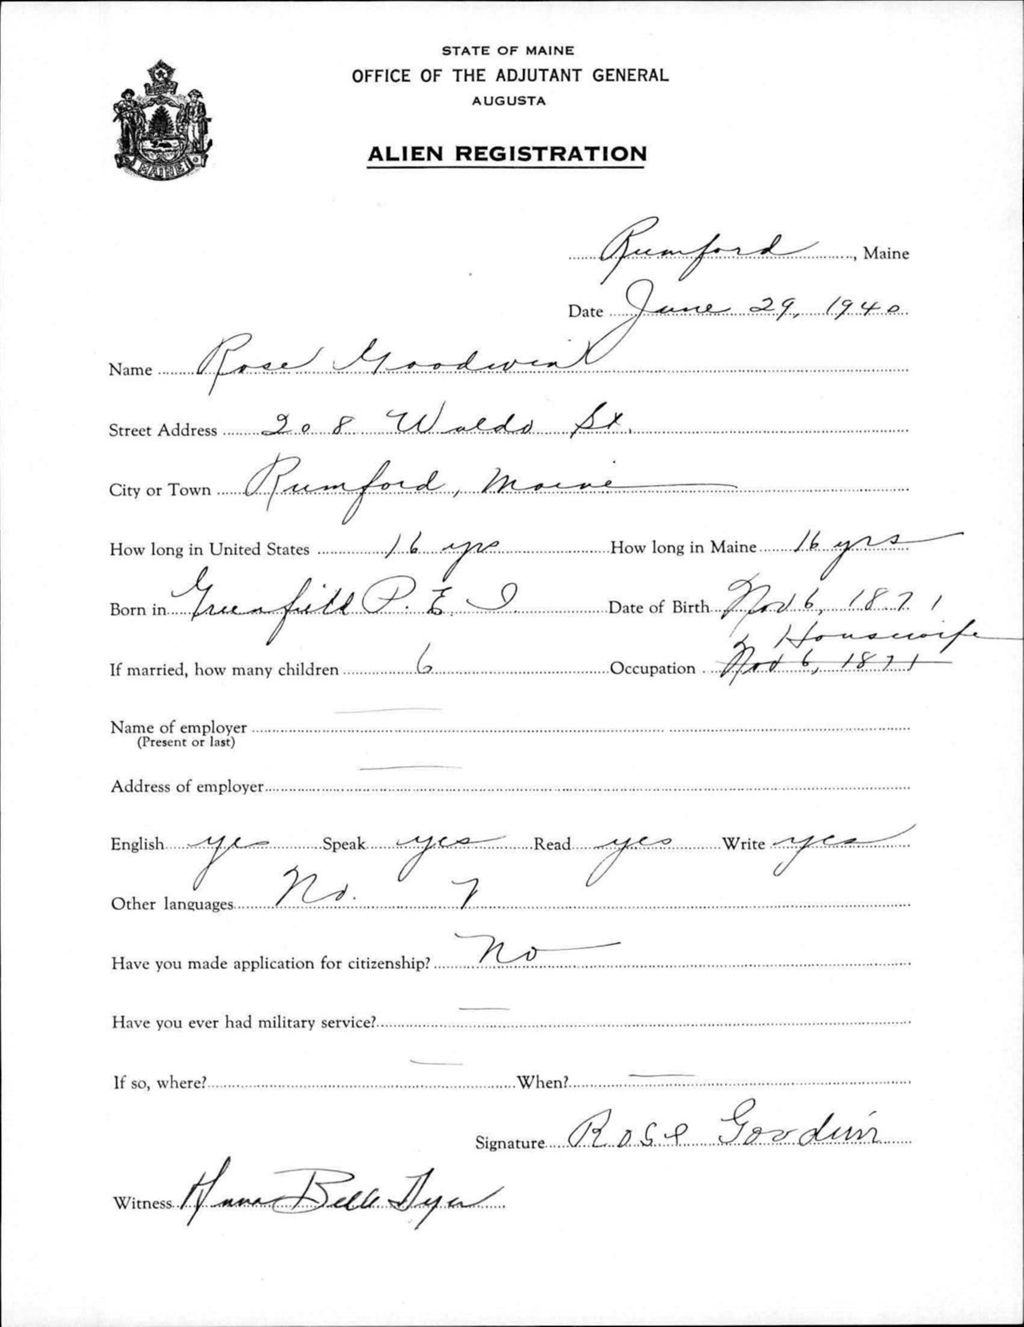 STATE OF MAINE
OFFICE OF THE ADJUTANT GENERAL
AUGUSTA
ALIEN REGISTRATION
MAINE
Rumford, Maine
Date June 29, 1940
Name Rose Goodwin
Street Address 208 Waldo St.
City or Town Rumford, Maine
How long in United States 16 yrs How long in Maine 16 yrs
Born in Greenfield P. E. I Date of Birth Nov 6, 1871
Housewife
If married, how many children 6 Occupation Nov 6, 1871
Name of employer
(Present or last)
Address of employer
English yes Speak yes Read yes Write yes
Other languages No.
Have you made application for citizenship? No
Have you ever had military service?
If so, where? When?
Signature Rose Goodwin
Witness Anna Belle Dyer